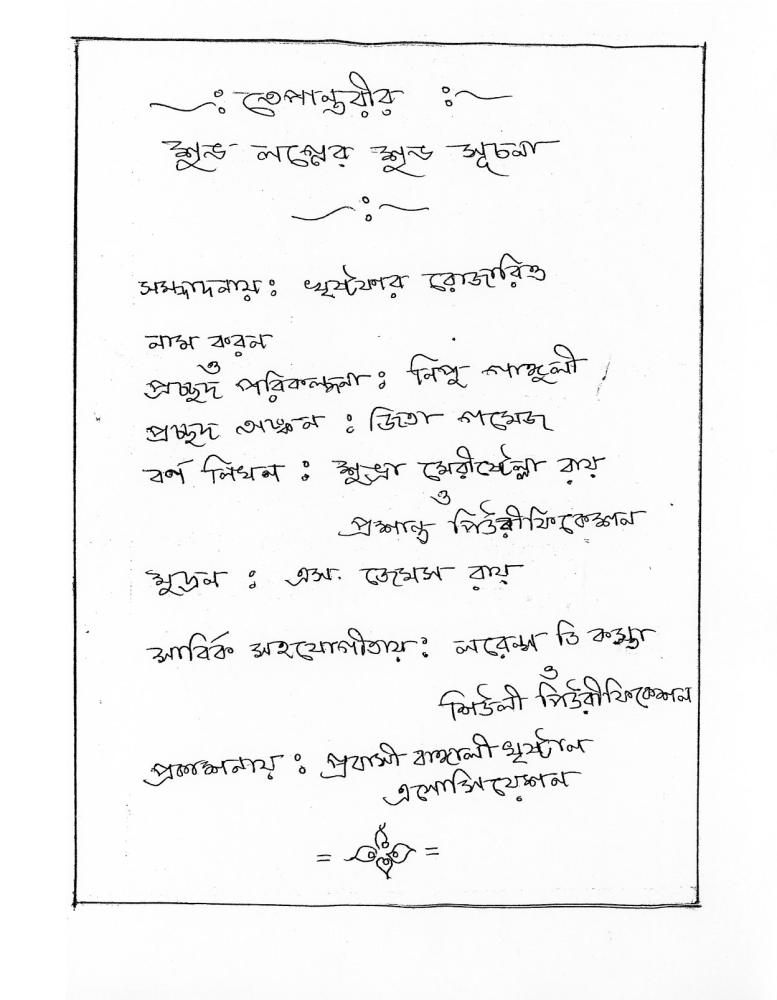 : তেপান্তরীর :
শুভ লগ্নের শুভ সূচনা
সম্পাদনায় : খৃষ্টফার রোজারিও
নাম করন
ও
প্রচ্ছদ পরিকল্পনা : নিপু গাঙ্গুলী
প্রচ্ছদ অঙ্কন : জিতা গমেজ
বর্ণ লিখন : শুভ্রা মেরীষ্টেল্লা রায়
ও
প্রশান্ত পিউরীফিকেশন
মুদ্রন : এস. জেমস রায়
সার্বিক সহযোগীতায় : লরেন্স ডি কস্তা
ও
শিউলী পিউরীফিকেশন
প্রকাশনায় : প্রবাসী বাঙ্গালী খৃষ্টান
এসোসিয়েশন